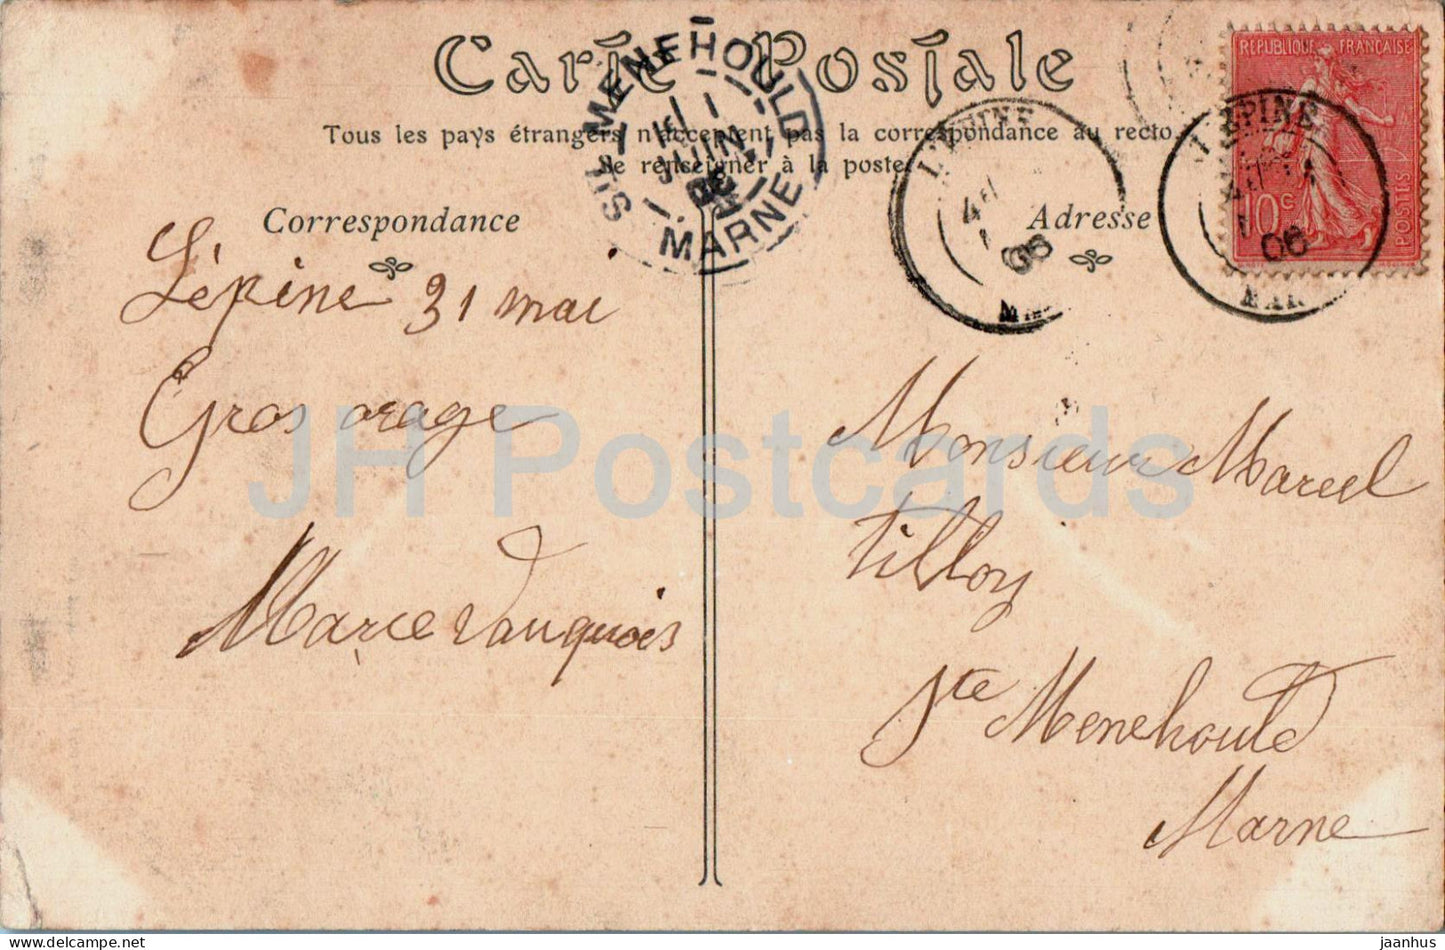 Carte Postale
Tous les pays étrangers n'acceptent pas la correspondance au recto
Se renseigner à la poste.
Correspondance
Adresse
Lépine 31 mai
Gros orage
Marce Vauquois
Monsieur Marcel
tilloy
Ste Menehould
Marne
STE MENEHOULD
MARNE
L'EPINE
06
L'EPINE
06
MAR
REPUBLIQUE FRANÇAISE
10c
POSTES
JH Postcards
jaanhus